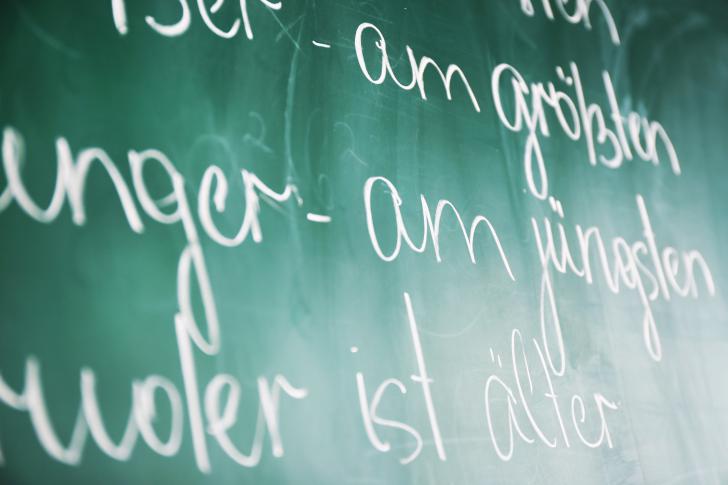 - am größten
unger - am jüngsten
ruder ist älter